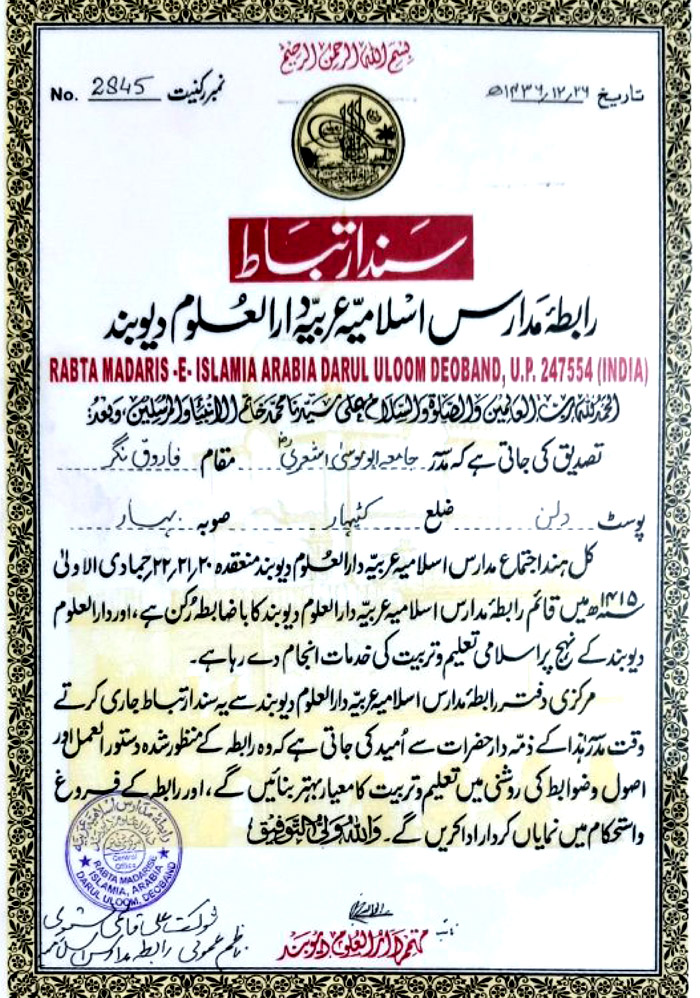 بسم اللہ الرحمن الرحیم
No. 2845 نمبر رکنیت
تاریخ ۲۶؍۱۲؍۱۴۳۶ھ
سند ارتباط
رابطۂ مدارس اسلامیہ عربیہ دارالعلوم دیوبند
RABTA MADARIS -E- ISLAMIA ARABIA DARUL ULOOM DEOBAND, U.P. 247554 (INDIA)
الحمد للہ رب العالمین والصلوۃ والسلام علی سیدنا محمد خاتم الانبیاء والمرسلین وبعد:
تصدیق کی جاتی ہے کہ مدرسہ جامعہ ابو موسیٰ اشعریؓ مقام فاروق نگر
پوسٹ دلن ضلع کٹیہار صوبہ بہار
کل ہند اجتماع مدارس اسلامیہ عربیہ دارالعلوم دیوبند منعقدہ ۲۰؍۲۱؍۲۲؍جمادی الاولیٰ
۱۴۱۵ھ میں قائم رابطۂ مدارس اسلامیہ عربیہ دارالعلوم دیوبند کا باضابطہ رکن ہے، اور دارالعلوم
دیوبند کے نہج پر اسلامی تعلیم و تربیت کی خدمات انجام دے رہا ہے۔
مرکزی دفتر رابطۂ مدارس اسلامیہ عربیہ دارالعلوم دیوبند سے یہ سند ارتباط جاری کرتے
وقت مدرسہ ہٰذا کے ذمہ دار حضرات سے اُمید کی جاتی ہے کہ وہ رابطہ کے منظور شدہ دستور العمل اور
اصول و ضوابط کی روشنی میں تعلیم و تربیت کا معیار بہتر بنائیں گے، اور رابطہ کے فروغ
و استحکام میں نمایاں کردار ادا کریں گے۔ واللہ ولی التوفیق
رابطہ مدارس اسلامیہ عربیہ
Central
Office
RABTA MADARISE
ISLAMIA, ARABIA
DARUL ULOOM, DEOBAND
شوکت علی قاسمی بستوی
ناظم عمومی رابطہ مدارس اسلامیہ
نائب
مہتمم دارالعلوم دیوبند